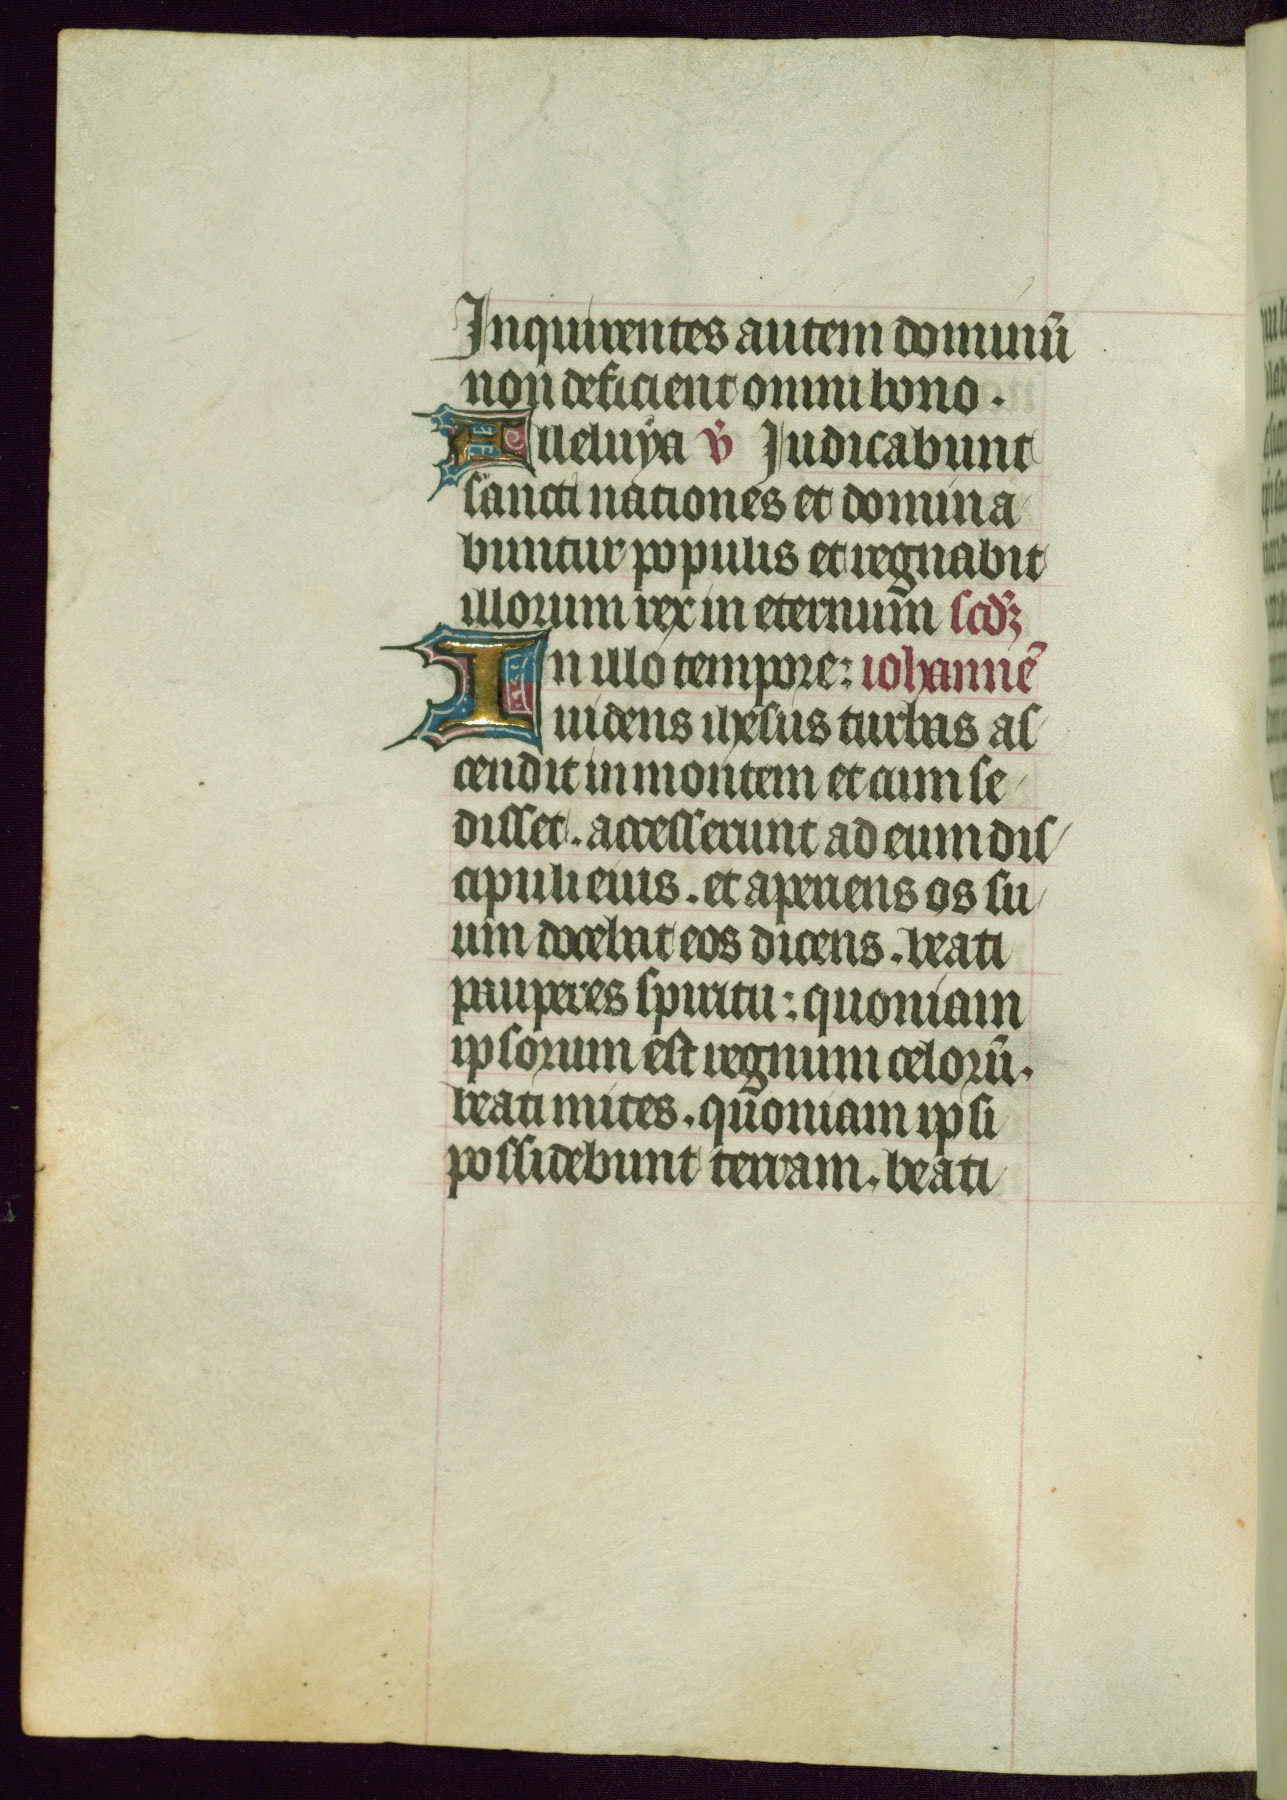 Inquirentes autem dominū
non deficient omni bono .
Alleluya v̄ Iudicabunt
sancti nationes et domina
buntur populis et regnabit
illorum rex in eternum scdȝ
In illo tempore: iohannē
uidens ihesus turbas as
cendit in montem et cum se
disset. accesserunt ad eum dis
cipuli eius. et aperiens os su
um docebat eos dicens. beati
pauperes spiritu: quoniam
ipsorum est regnum celorū.
beati mites. quoniam ipsi
possidebunt terram. beati